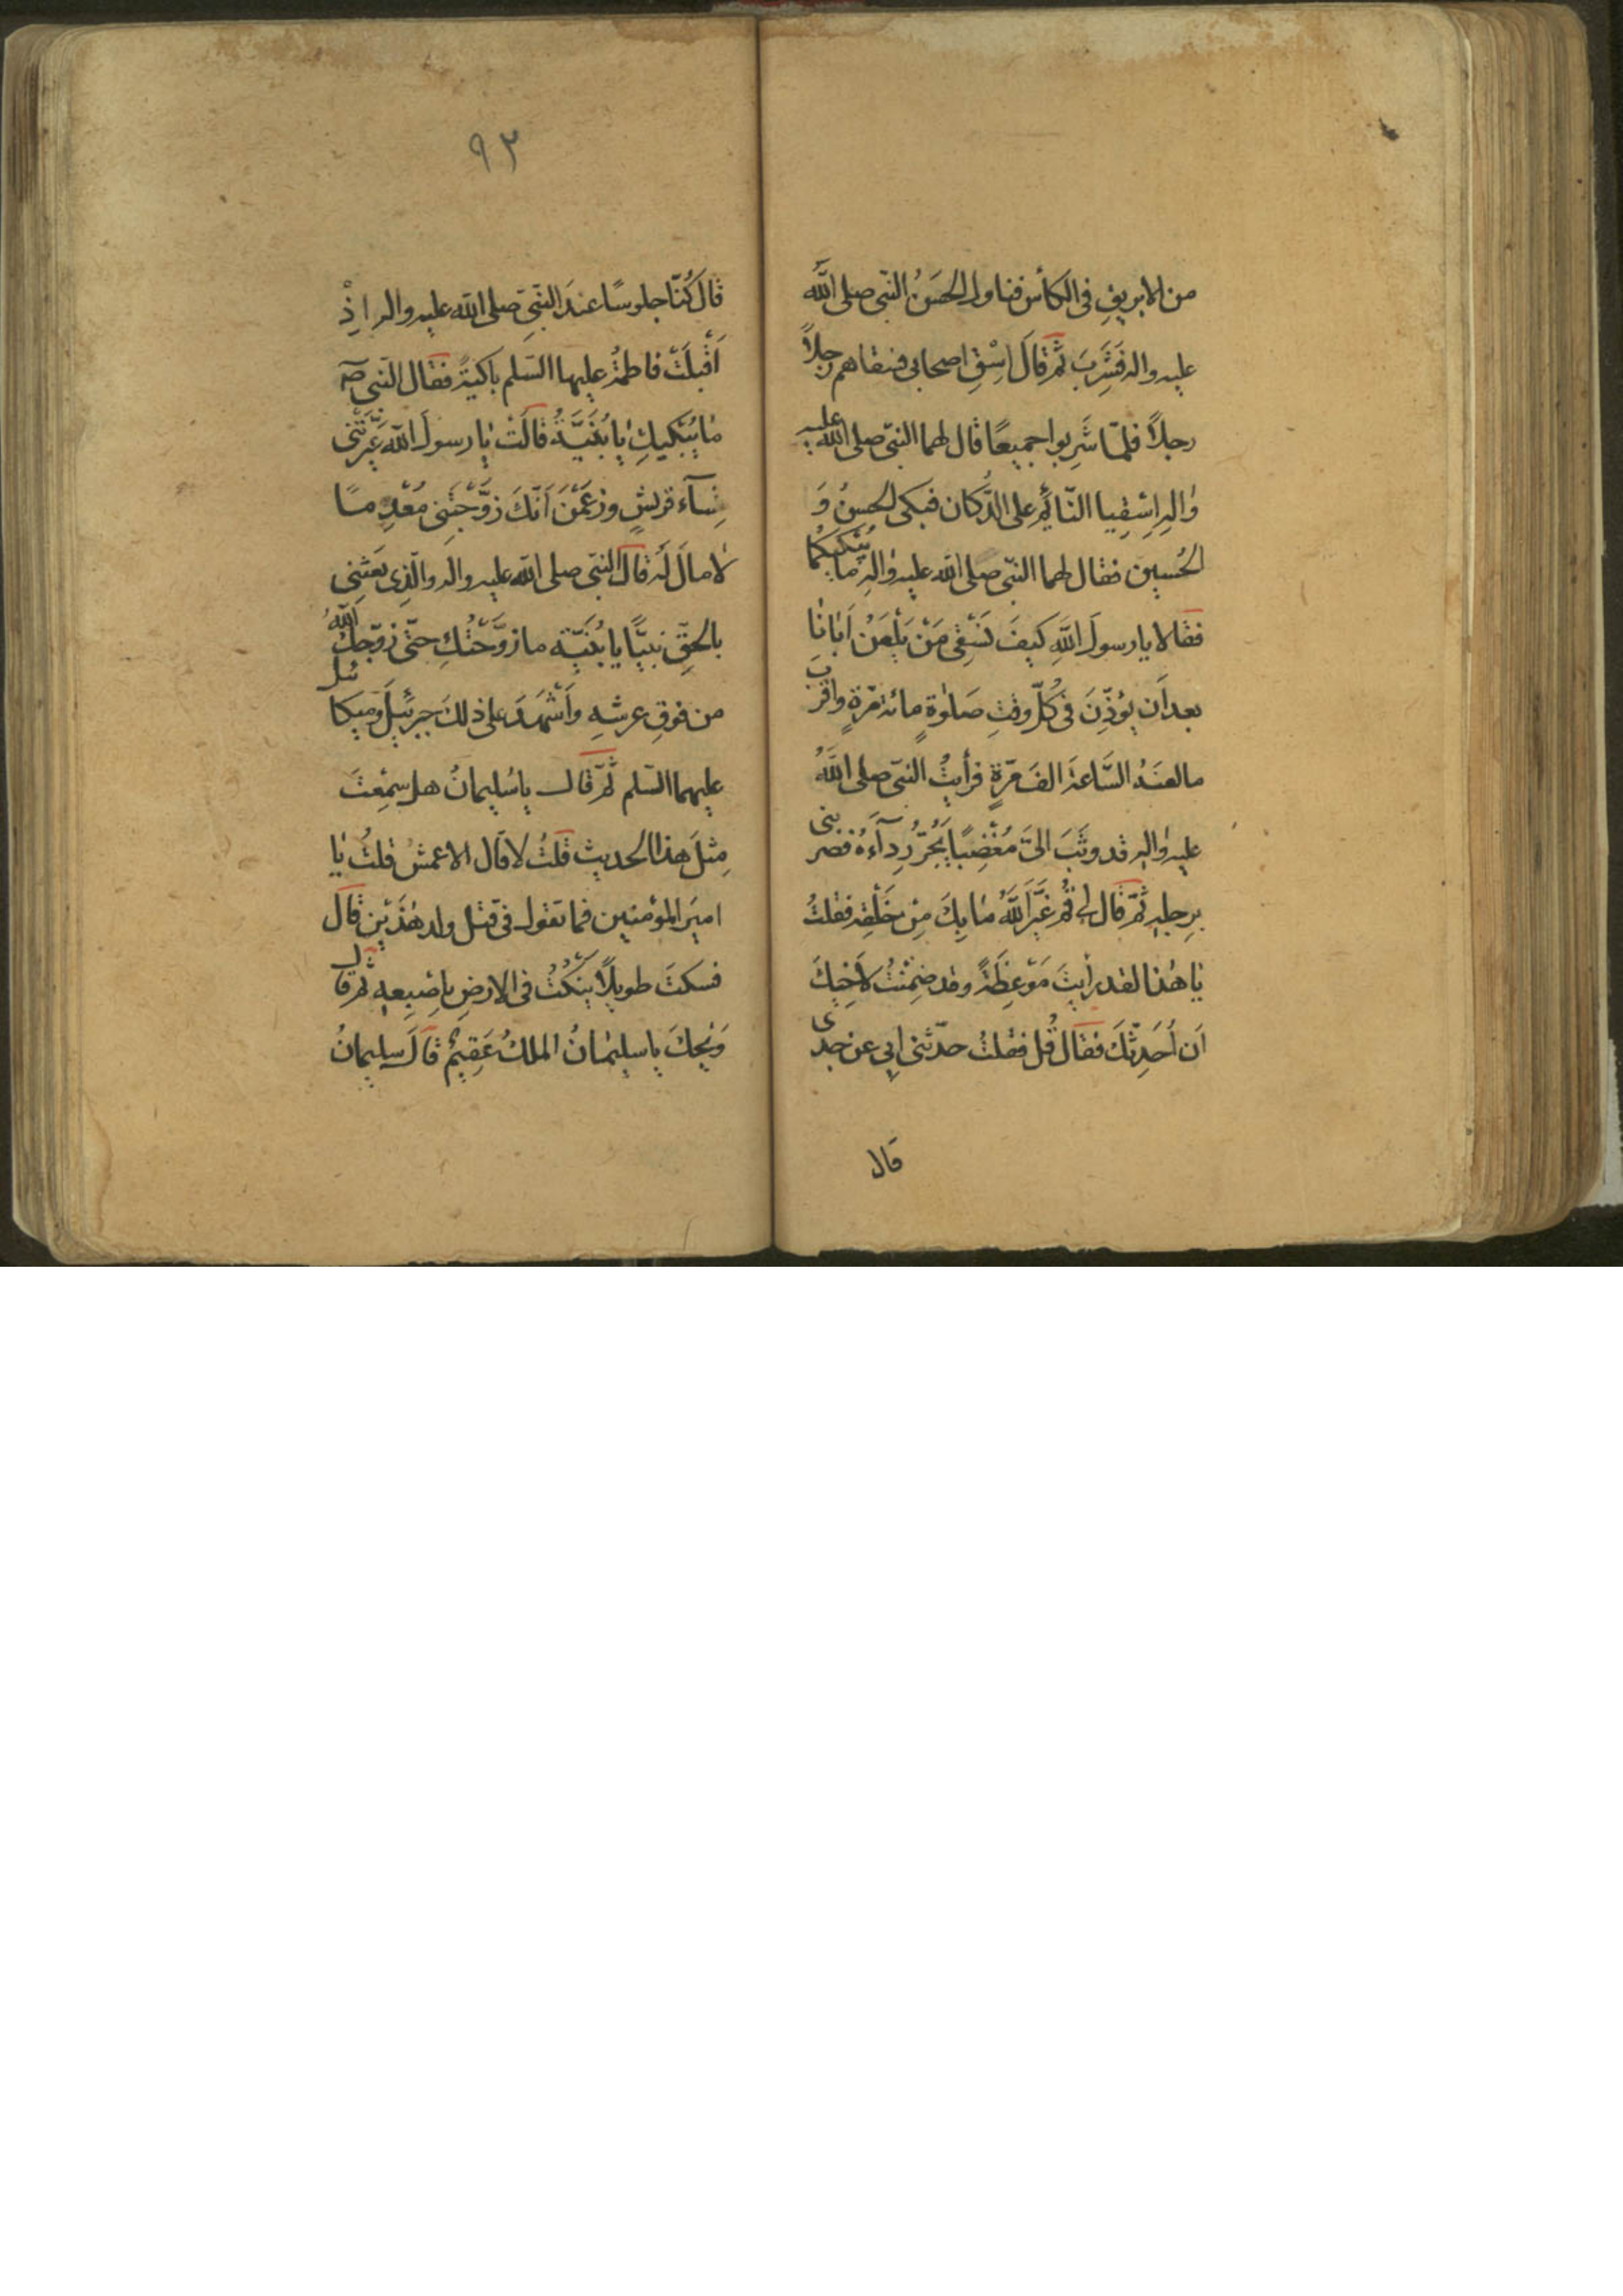 من الابريقِ فى الكأس فناول الحسَنُ النّبى صلى اللّٰه
عليه واله فَشَرِبَ ثُمّ قالَ اِسْقِ اصحابى فسقاهم رجلاً
رجلاً فلمّا شَرِبوا جميعًا قال لهما النبّى صلى اللّٰه عليه
واٰلهِ اِسْقِيا النّائم على الدّكان فبكى الحسنُ وَ
الحُسين فقال لهما النبّى صلى اللّه عليه واٰلهِ ما يُبْكيكُما
فقالا يا رسولَ اللّٰهِ كيفَ نَسْقى مَنْ يَلْعَنُ اَبانا
بعد اَن يؤذّنَ فى كُلّ وقتِ صَلٰوةٍ مائة مَرّةٍ واقربَ
مالعنَهُ السَّاعةَ الفَ مَرّةٍ فرأيتُ النبّى صلى اللّٰهُ
عليه واٰلهِ قد وثَبَ الىَّ مُغْضِبًا يَجُرُّ رِدآءَهُ فضربنى
برِجلهِ ثمّ قال لى قُمْ غَيَّرَ اللّٰهُ مٰا بِكَ مِنْ خَلْقِه فقلتُ
يٰا هٰذا لقد رأيتَ مَوْعِظَةً وقد ضَمِنْتُ لاَخيكَ
اَن اُحَدِّثكَ فقالَ قُل فقلتُ حدّثنى ابى عن جدّى
قال
٩٣
قال كُنّا جلوسًا عندَ النّبَىِّ صلى اللّه عليه واله اِذْ
اَقْبلَتْ فاطمةُ عليها السّلم باكيةً فقال النّبى صه
مٰا يُبْكيكِ يٰا بُنَيَّةُ قالَتْ يٰا رسولَ اللّه عَيَّرَتْنى
نِسآء قريشٍ وزعَمْنَ اَنّكَ زوَّجْتَنى مُعْدِمًا
لامالَ لَه قال النبّى صلى اللّه عليه واله والّذى بَعَثنى
بالحقّ نبيًّا يا بُنيّه ما زوَّجْتُكِ حتّى زوّجكِ اللّٰهُ
من فوقِ عرشِهِ واَشْهَدَ على ذلك جبرئيلَ وميكائيل
عليهما السّلم ثُمّ قال يا سُليمانُ هل سَمِعْتَ
مِثلَ هٰذا الحديث قلتُ لا قال الاعمشُ قلتُ يٰا
اميرَ المؤمنين فما تقول فى قتل ولد هٰذَيْن قال
فسكتَ طويلاً يَنكُتُ فى الارضِ باِصبعِهِ ثُمّ قال
وَيْحكَ يا سليمٰانُ الملكُ عَقيمٌ قالَ سليمانُ